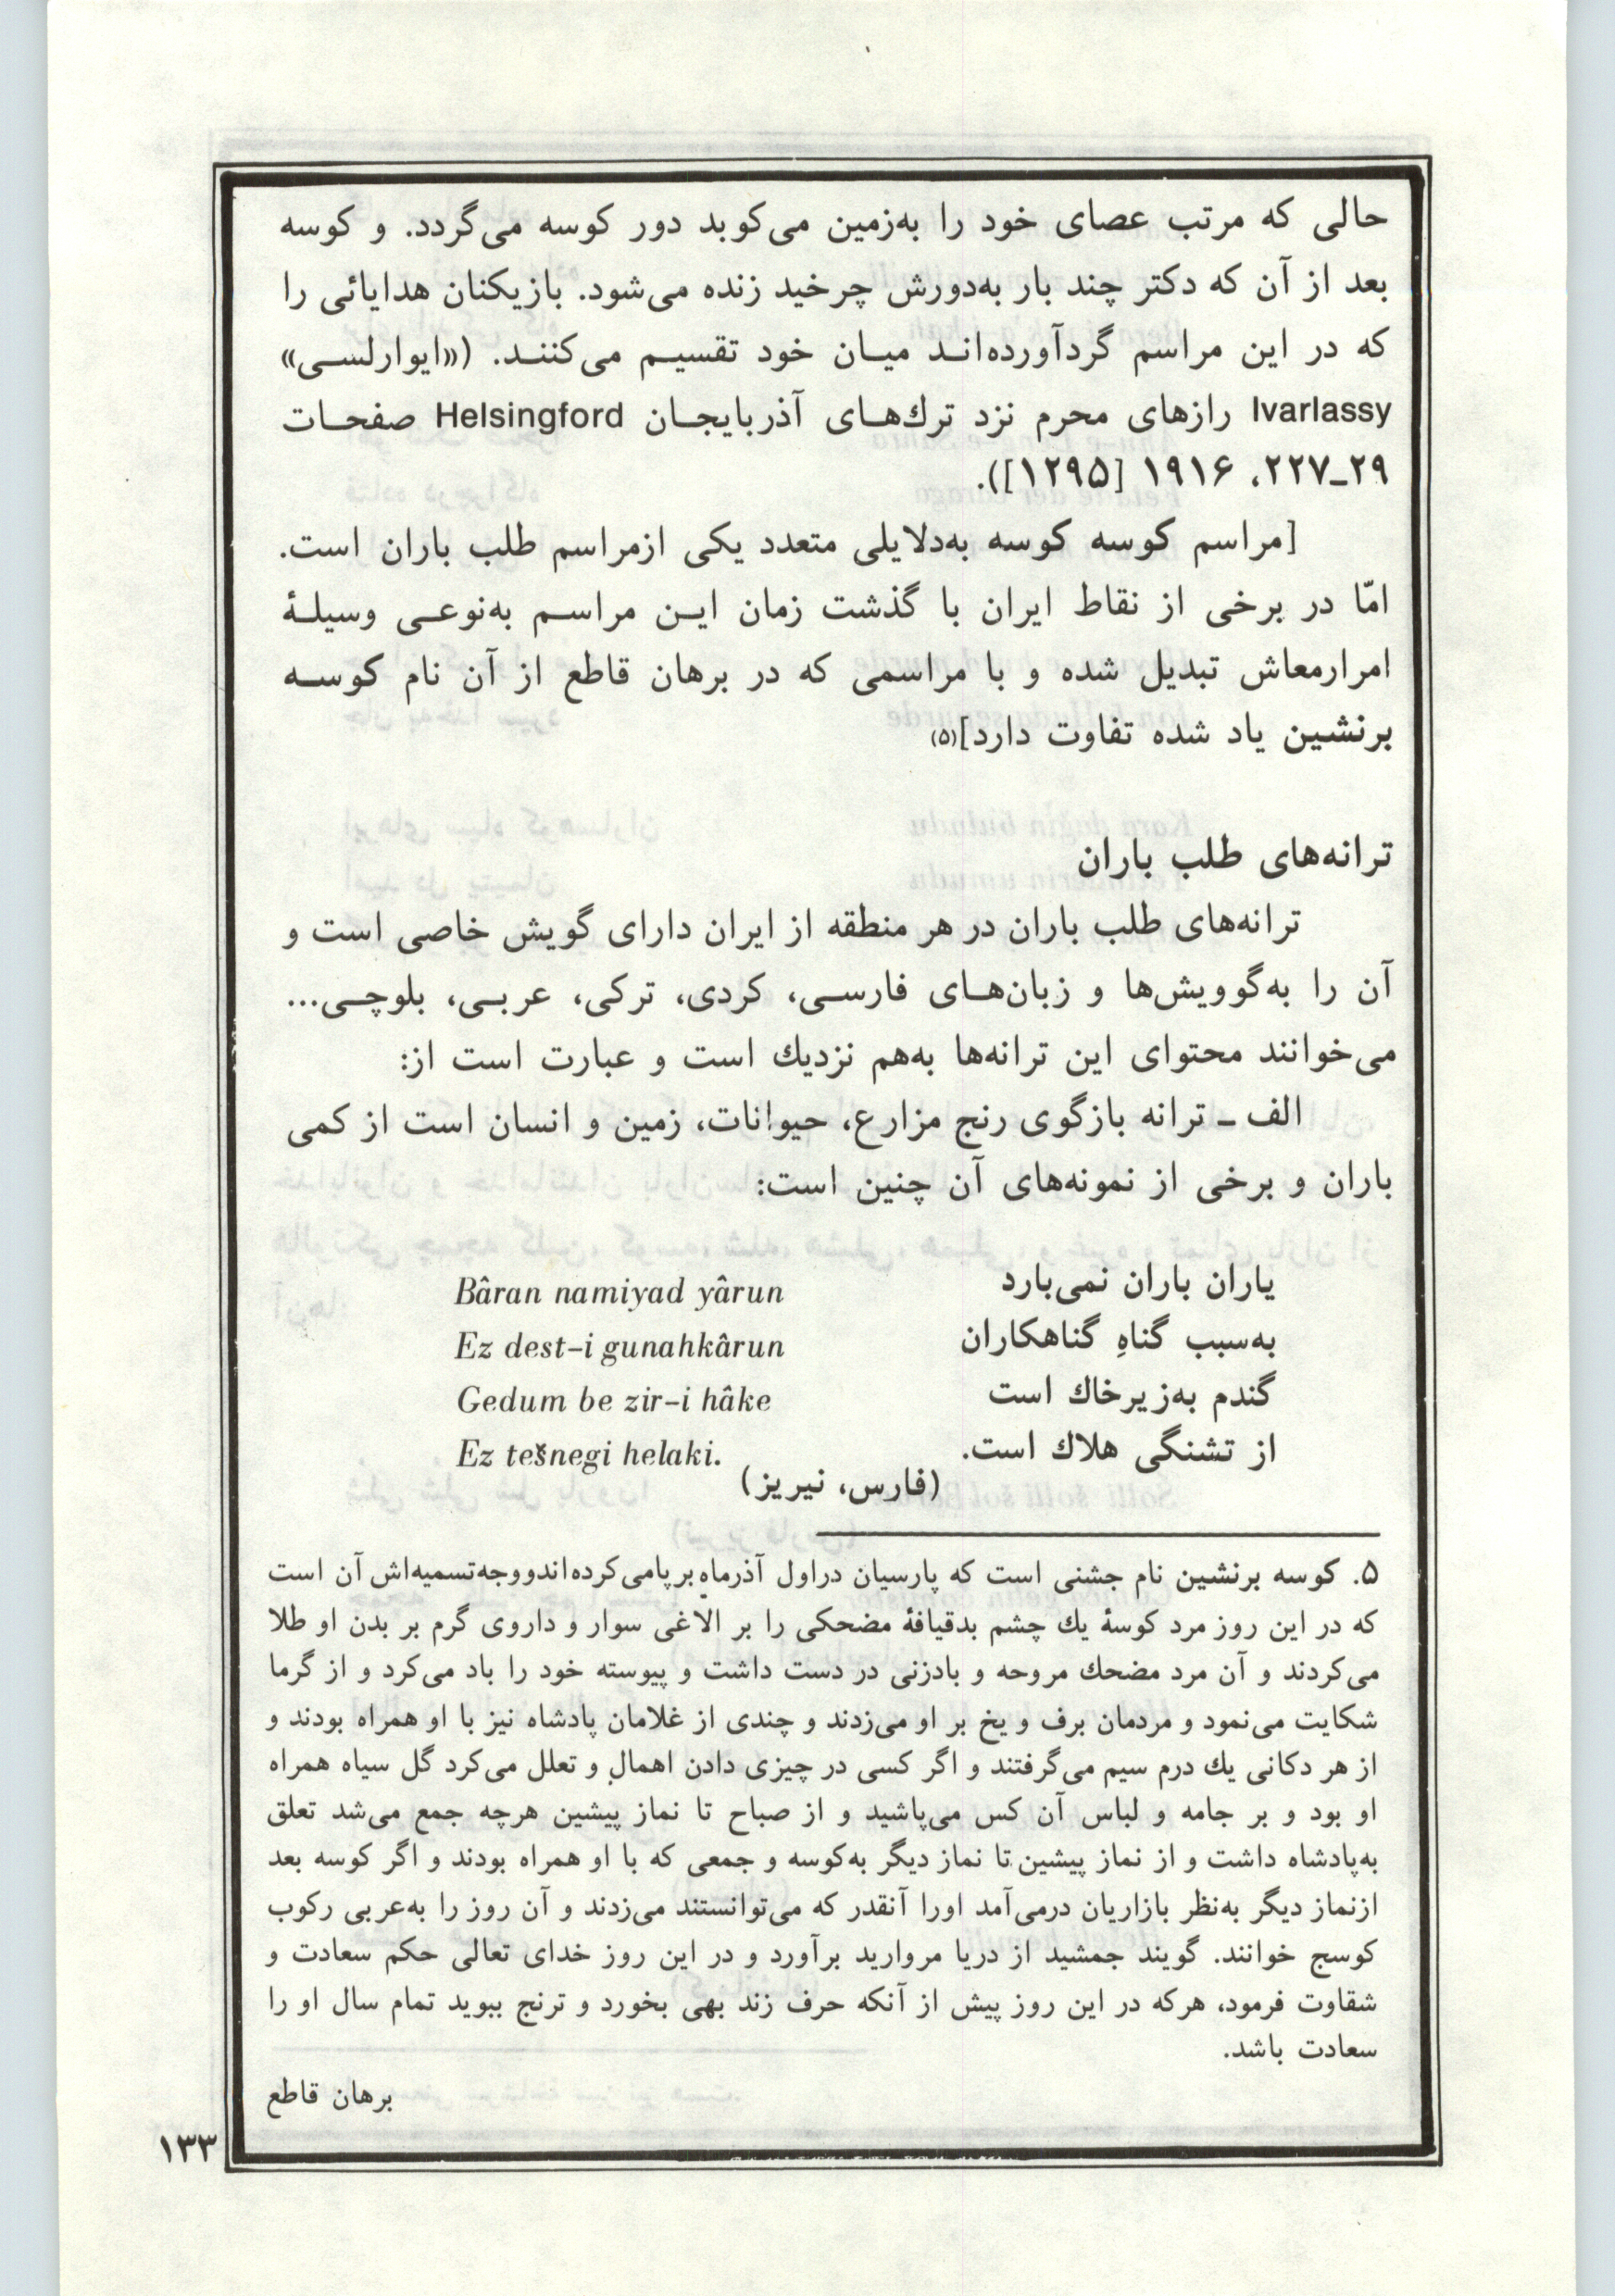 حالی که مرتب عصای خود را به‌زمین می‌کوبد دور کوسه می‌گردد. و کوسه
بعد از آن که دکتر چند بار به‌دورش چرخید زنده می‌شود. بازیکنان هدایائی را
که در این مراسم گردآورده‌اند میان خود تقسیم می‌کنند. (««ایوارلسی»
Ivarlassy رازهای محرم نزد ترك‌های آذربایجان Helsingford صفحات
۲۹ـ۲۲۷، ۱۹۱۶ [۱۲۹۵]).
[مراسم کوسه کوسه به‌دلایلی متعدد یکی ازمراسم طلب باران است.
امّا در برخی از نقاط ایران با گذشت زمان این مراسم به‌نوعی وسیلهٔ
امرارمعاش تبدیل شده و با مراسمی که در برهان قاطع از آن نام کوسه
برنشین یاد شده تفاوت دارد](۵)
ترانه‌های طلب باران
ترانه‌های طلب باران در هر منطقه از ایران دارای گویش خاصی است و
آن را به‌گوویش‌ها و زبان‌های فارسی، کردی، ترکی، عربی، بلوچی...
می‌خوانند محتوای این ترانه‌ها به‌هم نزدیك است و عبارت است از:
الف ـ ترانه بازگوی رنج مزارع، حیوانات، زمین و انسان است از کمی
باران و برخی از نمونه‌های آن چنین است:
یاران باران نمی‌بارد Bâran namiyad yârun
به‌سبب گناهِ گناهکاران Ez dest-i gunahkârun
گندم به‌زیرخاك است Gedum be zir-i hâke
از تشنگی هلاك است. Ez tešnegi helaki.
(فارس، نیریز)
۵. کوسه برنشین نام جشنی است که پارسیان دراول آذرماه برپامی‌کرده‌اندووجه‌تسمیه‌اش آن است
که در این روز مرد کوسهٔ یك چشم بدقیافهٔ مضحکی را بر الاغی سوار و داروی گرم بر بدن او طلا
می‌کردند و آن مرد مضحك مروحه و بادزنی در دست داشت و پیوسته خود را باد می‌کرد و از گرما
شکایت می‌نمود و مردمان برف و یخ بر او می‌زدند و چندی از غلامان پادشاه نیز با او همراه بودند و
از هر دکانی یك درم سیم می‌گرفتند و اگر کسی در چیزی دادن اهمال و تعلل می‌کرد گل سیاه همراه
او بود و بر جامه و لباس آن کس می‌پاشید و از صباح تا نماز پیشین هرچه جمع می‌شد تعلق
به‌پادشاه داشت و از نماز پیشین تا نماز دیگر به‌کوسه و جمعی که با او همراه بودند و اگر کوسه بعد
ازنماز دیگر به‌نظر بازاریان درمی‌آمد اورا آنقدر که می‌توانستند می‌زدند و آن روز را به‌عربی رکوب
کوسج خوانند. گویند جمشید از دریا مروارید برآورد و در این روز خدای تعالی حکم سعادت و
شقاوت فرمود، هرکه در این روز پیش از آنکه حرف زند بهی بخورد و ترنج ببوید تمام سال او را
سعادت باشد.
برهان قاطع
۱۳۳